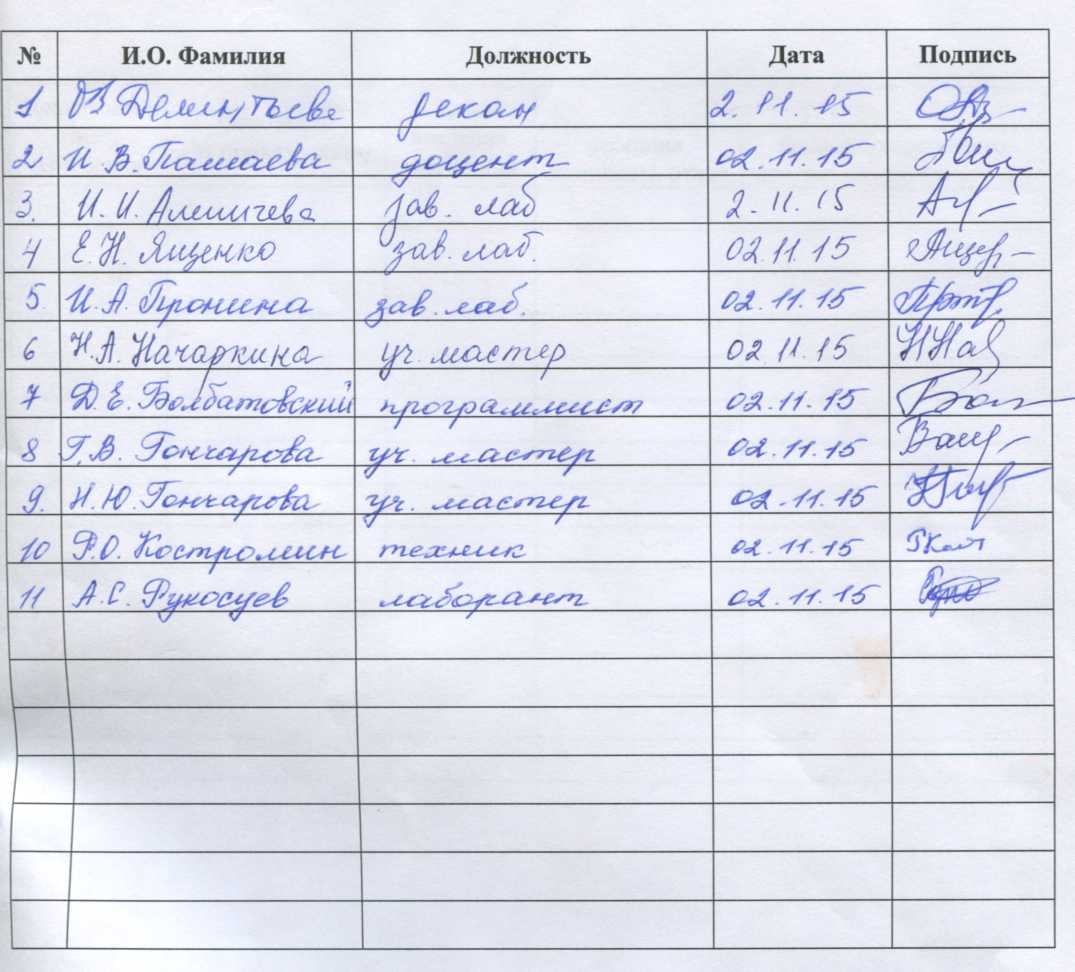 № И.О. Фамилия Должность Дата Подпись
1 ОВ Дементьева декан 2.11.15
2 И.В. Пашаева доцент 02.11.15
3. И.И. Алешичева зав. лаб 2.11.15
4 Е.Н. Ященко зав. лаб. 02.11.15
5. И.А. Пронина зав. лаб. 02.11.15
6 Н.А. Началкина уч. мастер 02.11.15
7 Д.Е. Болбатовский программист 02.11.15
8 Г.В. Гончарова уч. мастер 02.11.15
9. Н.Ю. Гончарова уч. мастер 02.11.15
10 Р.О. Костромин техник 02.11.15
11 А.С. Рукосуев лаборант 02.11.15